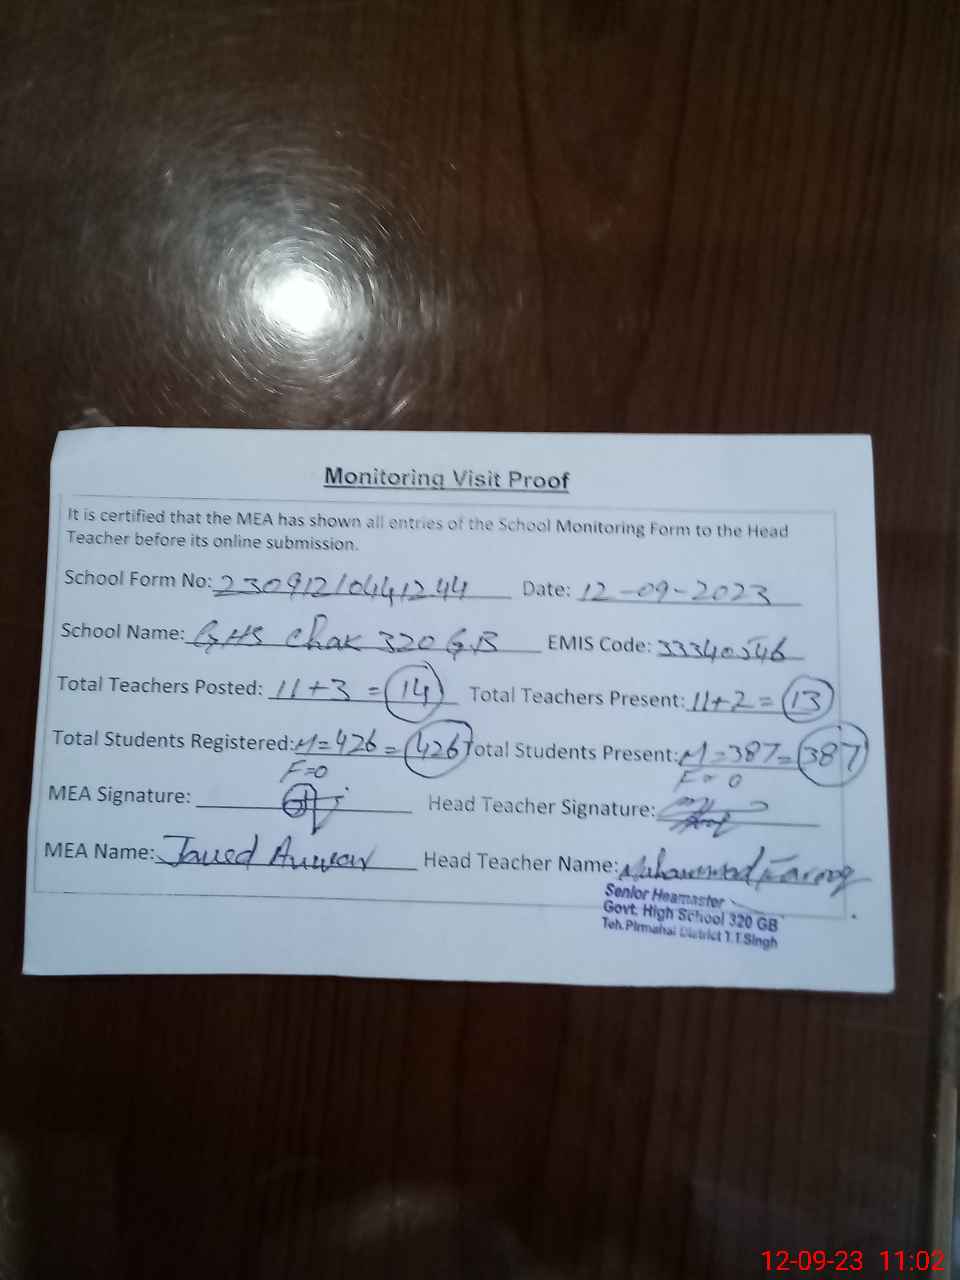 Monitoring Visit Proof
It is certified that the MEA has shown all entries of the School Monitoring Form to the Head
Teacher before its online submission.
School Form No: 23091210441244 Date: 12-09-2023
School Name: GHS Chak 320 GB EMIS Code: 33340546
Total Teachers Posted: 11+3 = 14 Total Teachers Present: 11+2 = 13
Total Students Registered: M=426 = 426 Total Students Present: M=387= 387
F=0 F= 0
MEA Signature: Head Teacher Signature:
MEA Name: Javed Anwar Head Teacher Name: Muhammad Farooq
Senior Heamaster
Govt. High School 320 GB
Teh.Pirmahal District T.T.Singh
12-09-23 11:02